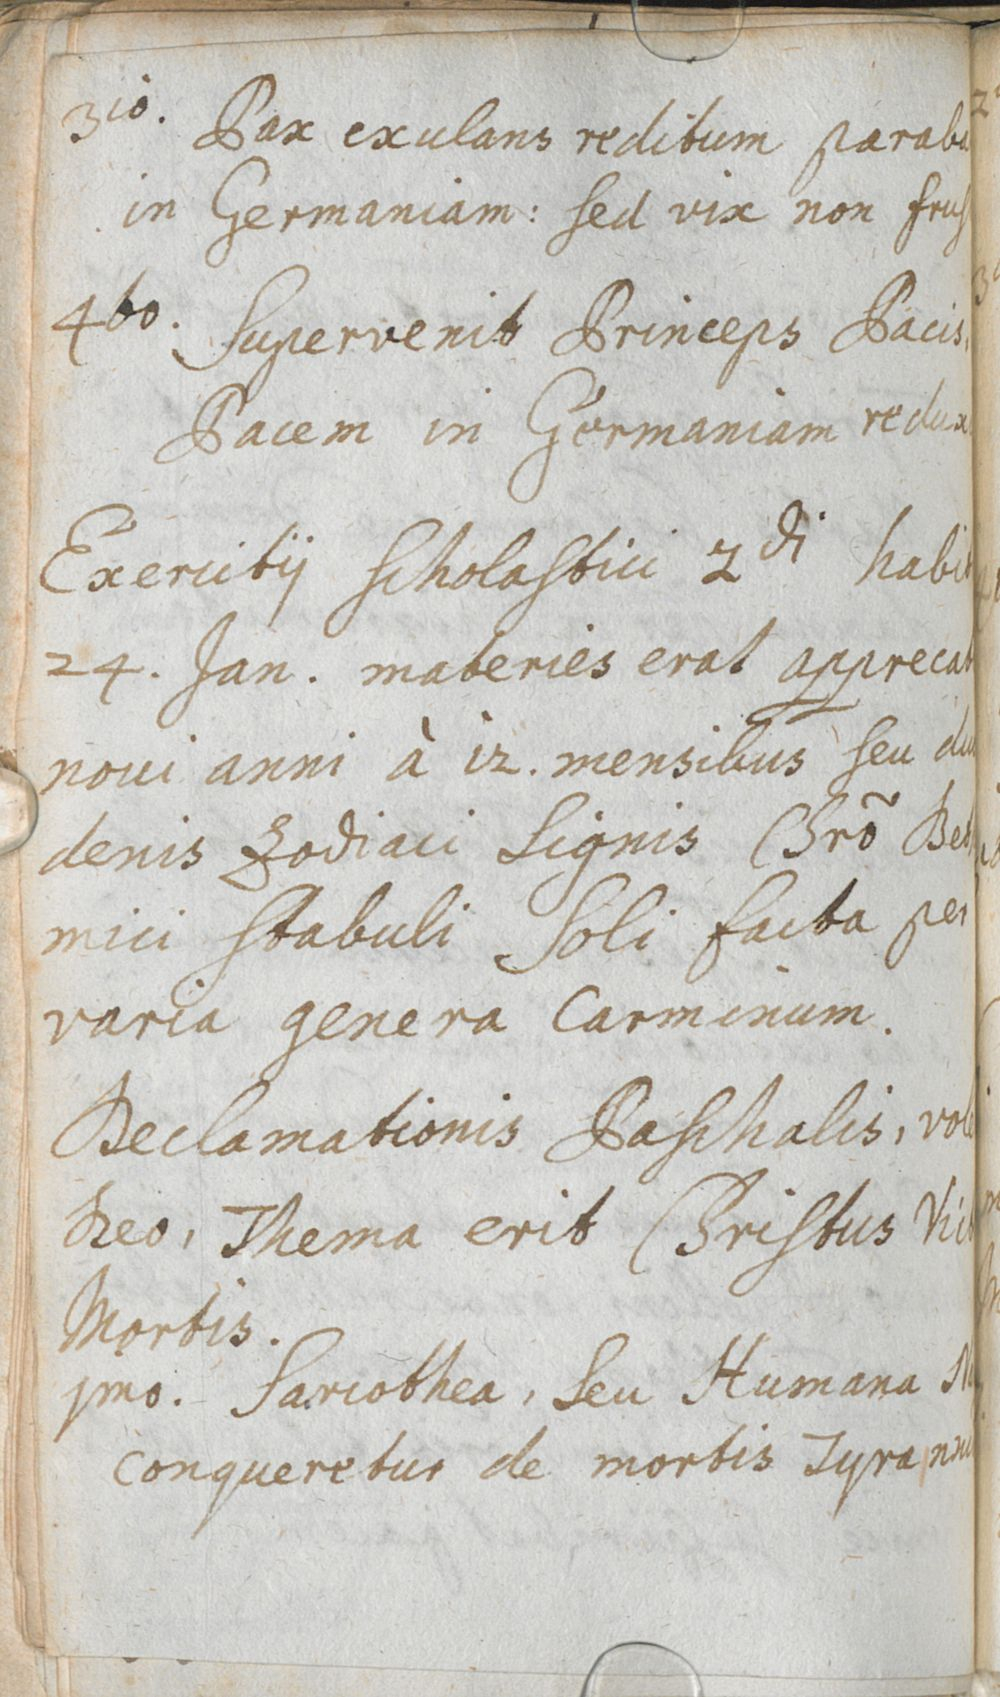 3io. Pax exulans reditum paraba
in Germaniam: sed vix non frus
4to. Supervenit Princeps Pacis,
Pacem in Germaniam redux
Exercitij scholastici 2di habit
24. Jan. materies erat apprecat
novi anni à 12. mensibus seu du
denis Zodiaci Signis Chrõ Beth
mici stabuli Soli facta per
varia genera Carminum.
Declamationis Paschalis, vole
Deo, Thema erit Christus Vict
Mortis.
1mo. Sarcothea, seu Humana Na
conqueretur de mortis Tyranni